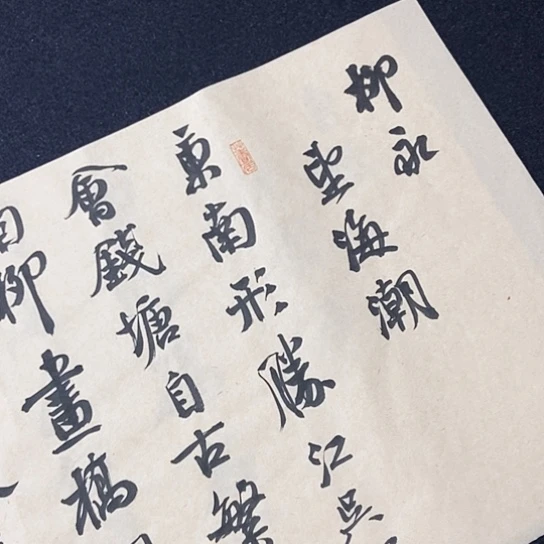 柳永
望海潮
東南形勝江吳
會錢塘自古繁
柳畫橋